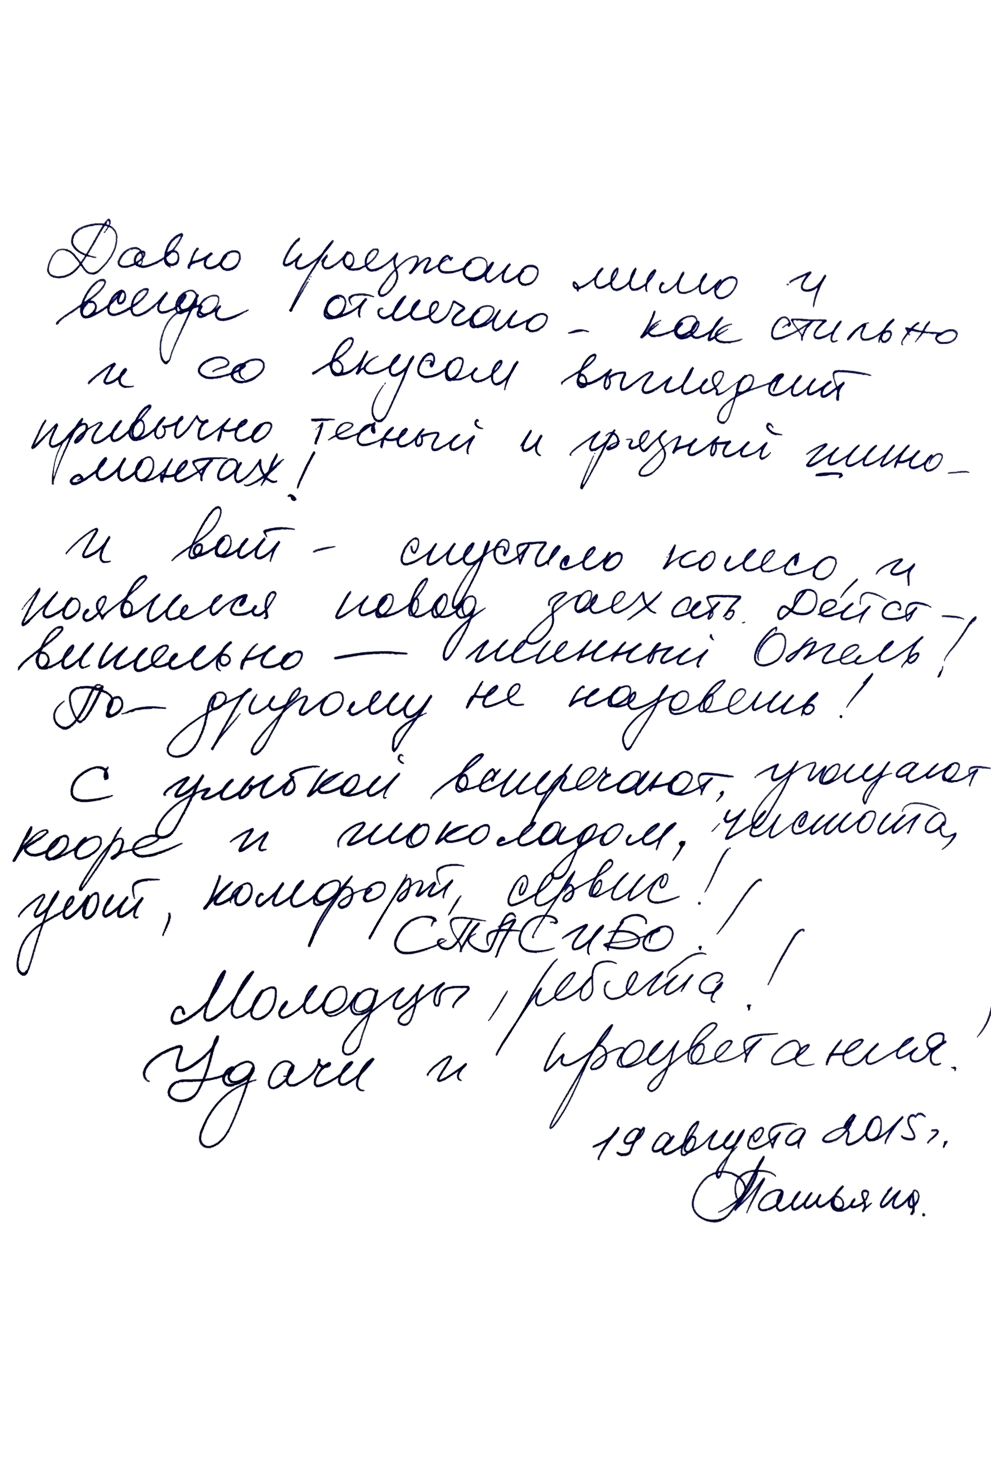 Давно проезжаю мимо и
всегда отмечаю - как стильно
и со вкусом выглядит
привычно тесный и грязный шино-
монтаж!
И вот - спустило колесо, и
появился повод заехать. Дейст-
вительно — шинный Отель!
По-другому не назовешь!
С улыбкой встречают, угощают
кофе и шоколадом, чистота,
уют, комфорт, сервис!
СПАСИБО!
Молодцы, ребята!
Удачи и процветания!
19 августа 2015г.
Татьяна.